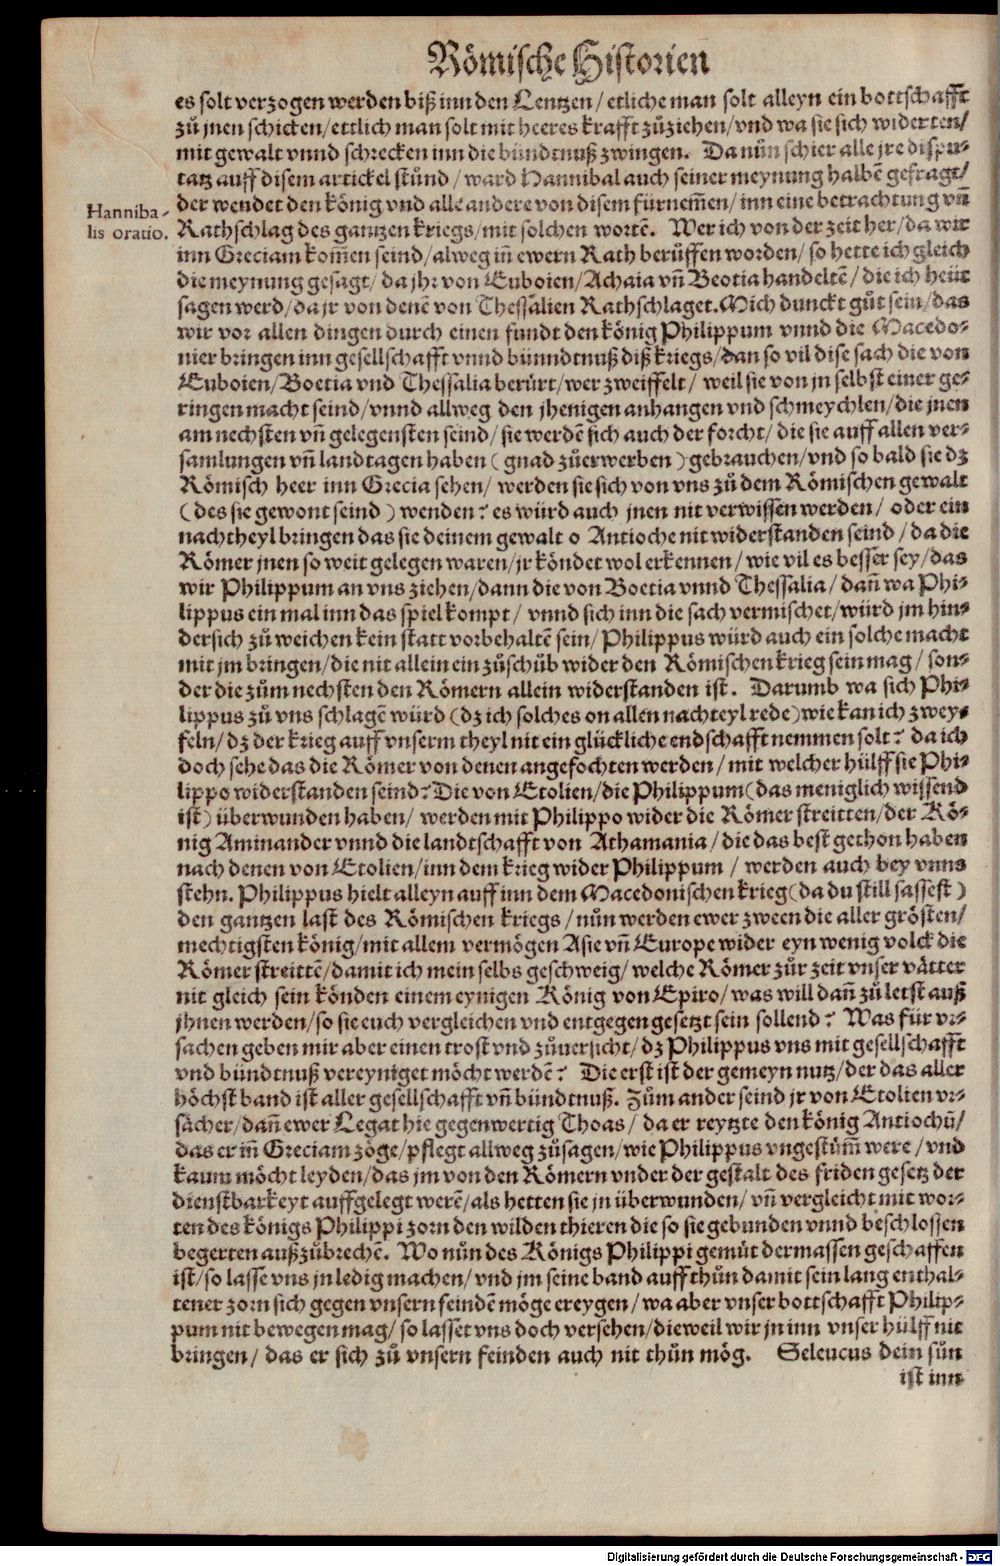 Römische Historien
es solt verzogen werden biß inn den Lentzen/ etliche man solt alleyn ein bottschafft
zů jnen schicken/ ettlich man solt mit heeres krafft zůziehen/ vnd wa sie sich widerten/
mit gewalt vnnd schrecken inn die bündtnuß zwingen. Da nůn schier alle jre dispu⸗
tatz auff disem artickel stůnd/ ward Hannibal auch seiner meynung halbẽ gefragt/
Hanniba-
lis oratio.
der wendet den könig vnd alle andere von disem fürnem̃en/ inn eine betrachtung vñ
Rathschlag des gantzen kriegs/ mit solchen wortẽ. Wer ich von der zeit her/ da wir
inn Greciam kom̃en seind/ alweg iñ ewern Rath berůffen worden/ so hette ich gleich
die meynung gesagt/ da jhr von Euboien/ Achaia vñ Beotia handeltẽ/ die ich heüt
sagen werd/ da jr von denẽ von Thessalien Rathschlaget. Mich dunckt gůt sein/ das
wir vor allen dingen durch einen fundt den könig Philippum vnnd die Macedo⸗
nier bringen inn gesellschafft vnnd bünndtnuß diß kriegs/ dan so vil dise sach die von
Euboien/ Boetia vnd Thessalia berürt/ wer zweiffelt/ weil sie von jn selbst einer ge⸗
ringen macht seind/ vnnd allweg den jhenigen anhangen vnd schmeychlen/ die jnen
am nechsten vñ gelegensten seind/ sie werdẽ sich auch der forcht/ die sie auff allen ver⸗
samlungen vñ landtagen haben (gnad zůerwerben) gebrauchen/ vnd so bald sie dz
Römisch heer inn Grecia sehen/ werden sie sich von vns zů dem Römischen gewalt
(des sie gewont seind) wenden? es würd auch jnen nit verwissen werden/ oder ein
nachtheyl bringen das sie deinem gewalt o Antioche nit widerstanden seind/ da die
Römer jnen so weit gelegen waren/ jr köndet wol erkennen/ wie vil es besser sey/ das
wir Philippum an vns ziehen/ dann die von Boetia vnnd Thessalia/ dañ wa Phi⸗
lippus ein mal inn das spiel kompt/ vnnd sich inn die sach vermischet/ würd jm hin⸗
dersich zů weichen kein statt vorbehaltẽ sein/ Philippus würd auch ein solche macht
mit jm bringen/ die nit allein ein zůschůb wider den Römischen krieg sein mag/ son⸗
der die zům nechsten den Römern allein widerstanden ist. Darumb wa sich Phi⸗
lippus zů vns schlagẽ würd (dz ich solches on allen nachteyl rede) wie kan ich zwey⸗
feln/ dz der krieg auff vnserm theyl nit ein glückliche endschafft nemmen solt? da ich
doch sehe das die Römer von denen angefochten werden/ mit welcher hülff sie Phi⸗
lippo widerstanden seind? Die von Etolien/ die Philippum (das meniglich wissend
ist) überwunden haben/ werden mit Philippo wider die Römer streitten/ der Kö⸗
nig Aminander vnnd die landtschafft von Athamania/ die das best gethon haben
nach denen von Etolien/ inn dem krieg wider Philippum/ werden auch bey vnns
stehn. Philippus hielt alleyn auff inn dem Macedonischen krieg (da du still sassest)
den gantzen last des Römischen kriegs/ nůn werden ewer zween die aller grösten/
mechtigsten könig/ mit allem vermögen Asie vñ Europe wider eyn wenig volck die
Römer streittẽ/ damit ich mein selbs geschweig/ welche Römer zůr zeit vnser vätter
nit gleich sein könden einem eynigen König von Epiro/ was will dañ zů letst auß
jhnen werden/ so sie euch vergleichen vnd entgegen gesetzt sein sollend? Was für vr⸗
sachen geben mir aber einen trost vnd zůversicht/ dz Philippus vns mit gesellschafft
vnd bündtnuß vereyniget möcht werdẽ? Die erst ist der gemeyn nutz/ der das aller
höchst band ist aller gesellschafft vñ bündtnuß. Zům ander seind jr von Etolien vr⸗
sächer/ dañ ewer Legat hie gegenwertig Thoas/ da er reytzte den könig Antiochũ/
das er iñ Greciam zöge/ pflegt allweg zůsagen/ wie Philippus vngestům̃ were/ vnd
kaum möcht leyden/ das jm von den Römern vnder der gestalt des friden gesetz der
dienstbarkeyt auffgelegt werẽ/ als hetten sie jn überwunden/ vñ vergleicht mit wor⸗
ten des königs Philippi zorn den wilden thieren die so sie gebunden vnnd beschlossen
begerten außzůbrechẽ. Wo nůn des Königs Philippi gemüt dermassen geschaffen
ist/ so lasse vns jn ledig machen/ vnd jm seine band auff thůn damit sein lang enthal⸗
tener zorn sich gegen vnsern feindẽ möge ereygen/ wa aber vnser bottschafft Philip⸗
pum nit bewegen mag/ so lasset vns doch versehen/ dieweil wir jn inn vnser hülff nit
bringen/ das er sich zů vnsern feinden auch nit thůn mög. Seleucus dein sůn
ist inn
Digitalisierung gefördert durch die Deutsche Forschungsgemeinschaft - DFG